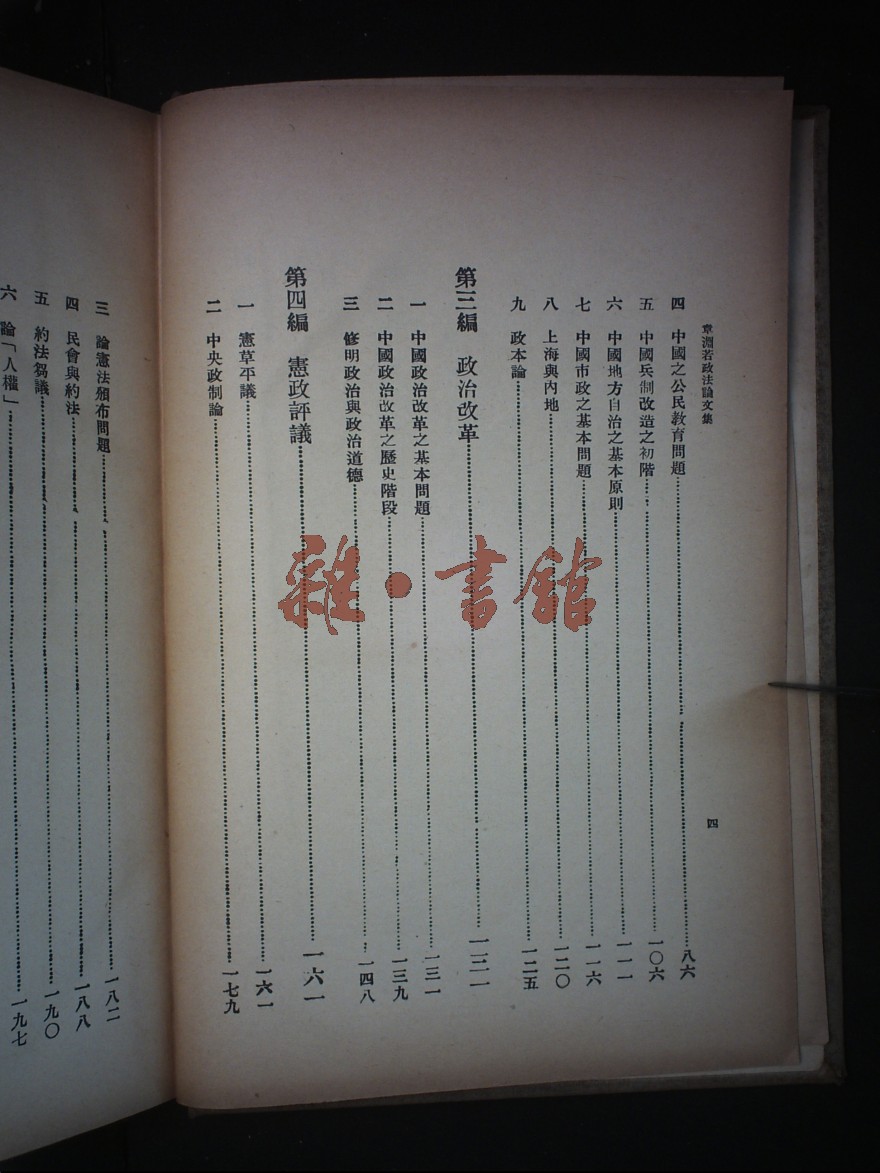 章淵若政法論文集
四
四 中國之公民教育問題 八六
五 中國兵制改造之初階 一〇六
六 中國地方自治之基本原則 一一一
七 中國市政之基本問題 一一六
八 上海與內地 一二〇
九 政本論 一二五
第三編 政治改革 一三一
一 中國政治改革之基本問題 一三一
二 中國政治改革之歷史階段 一三九
三 修明政治與政治道德 一四八
第四編 憲政評議 一六一
一 憲草平議 一六一
二 中央政制論 一七九
三 論憲法頒布問題 一八二
四 民會與約法 一八八
五 約法芻議 一九〇
六 論「人權」 一九七
雜·書館